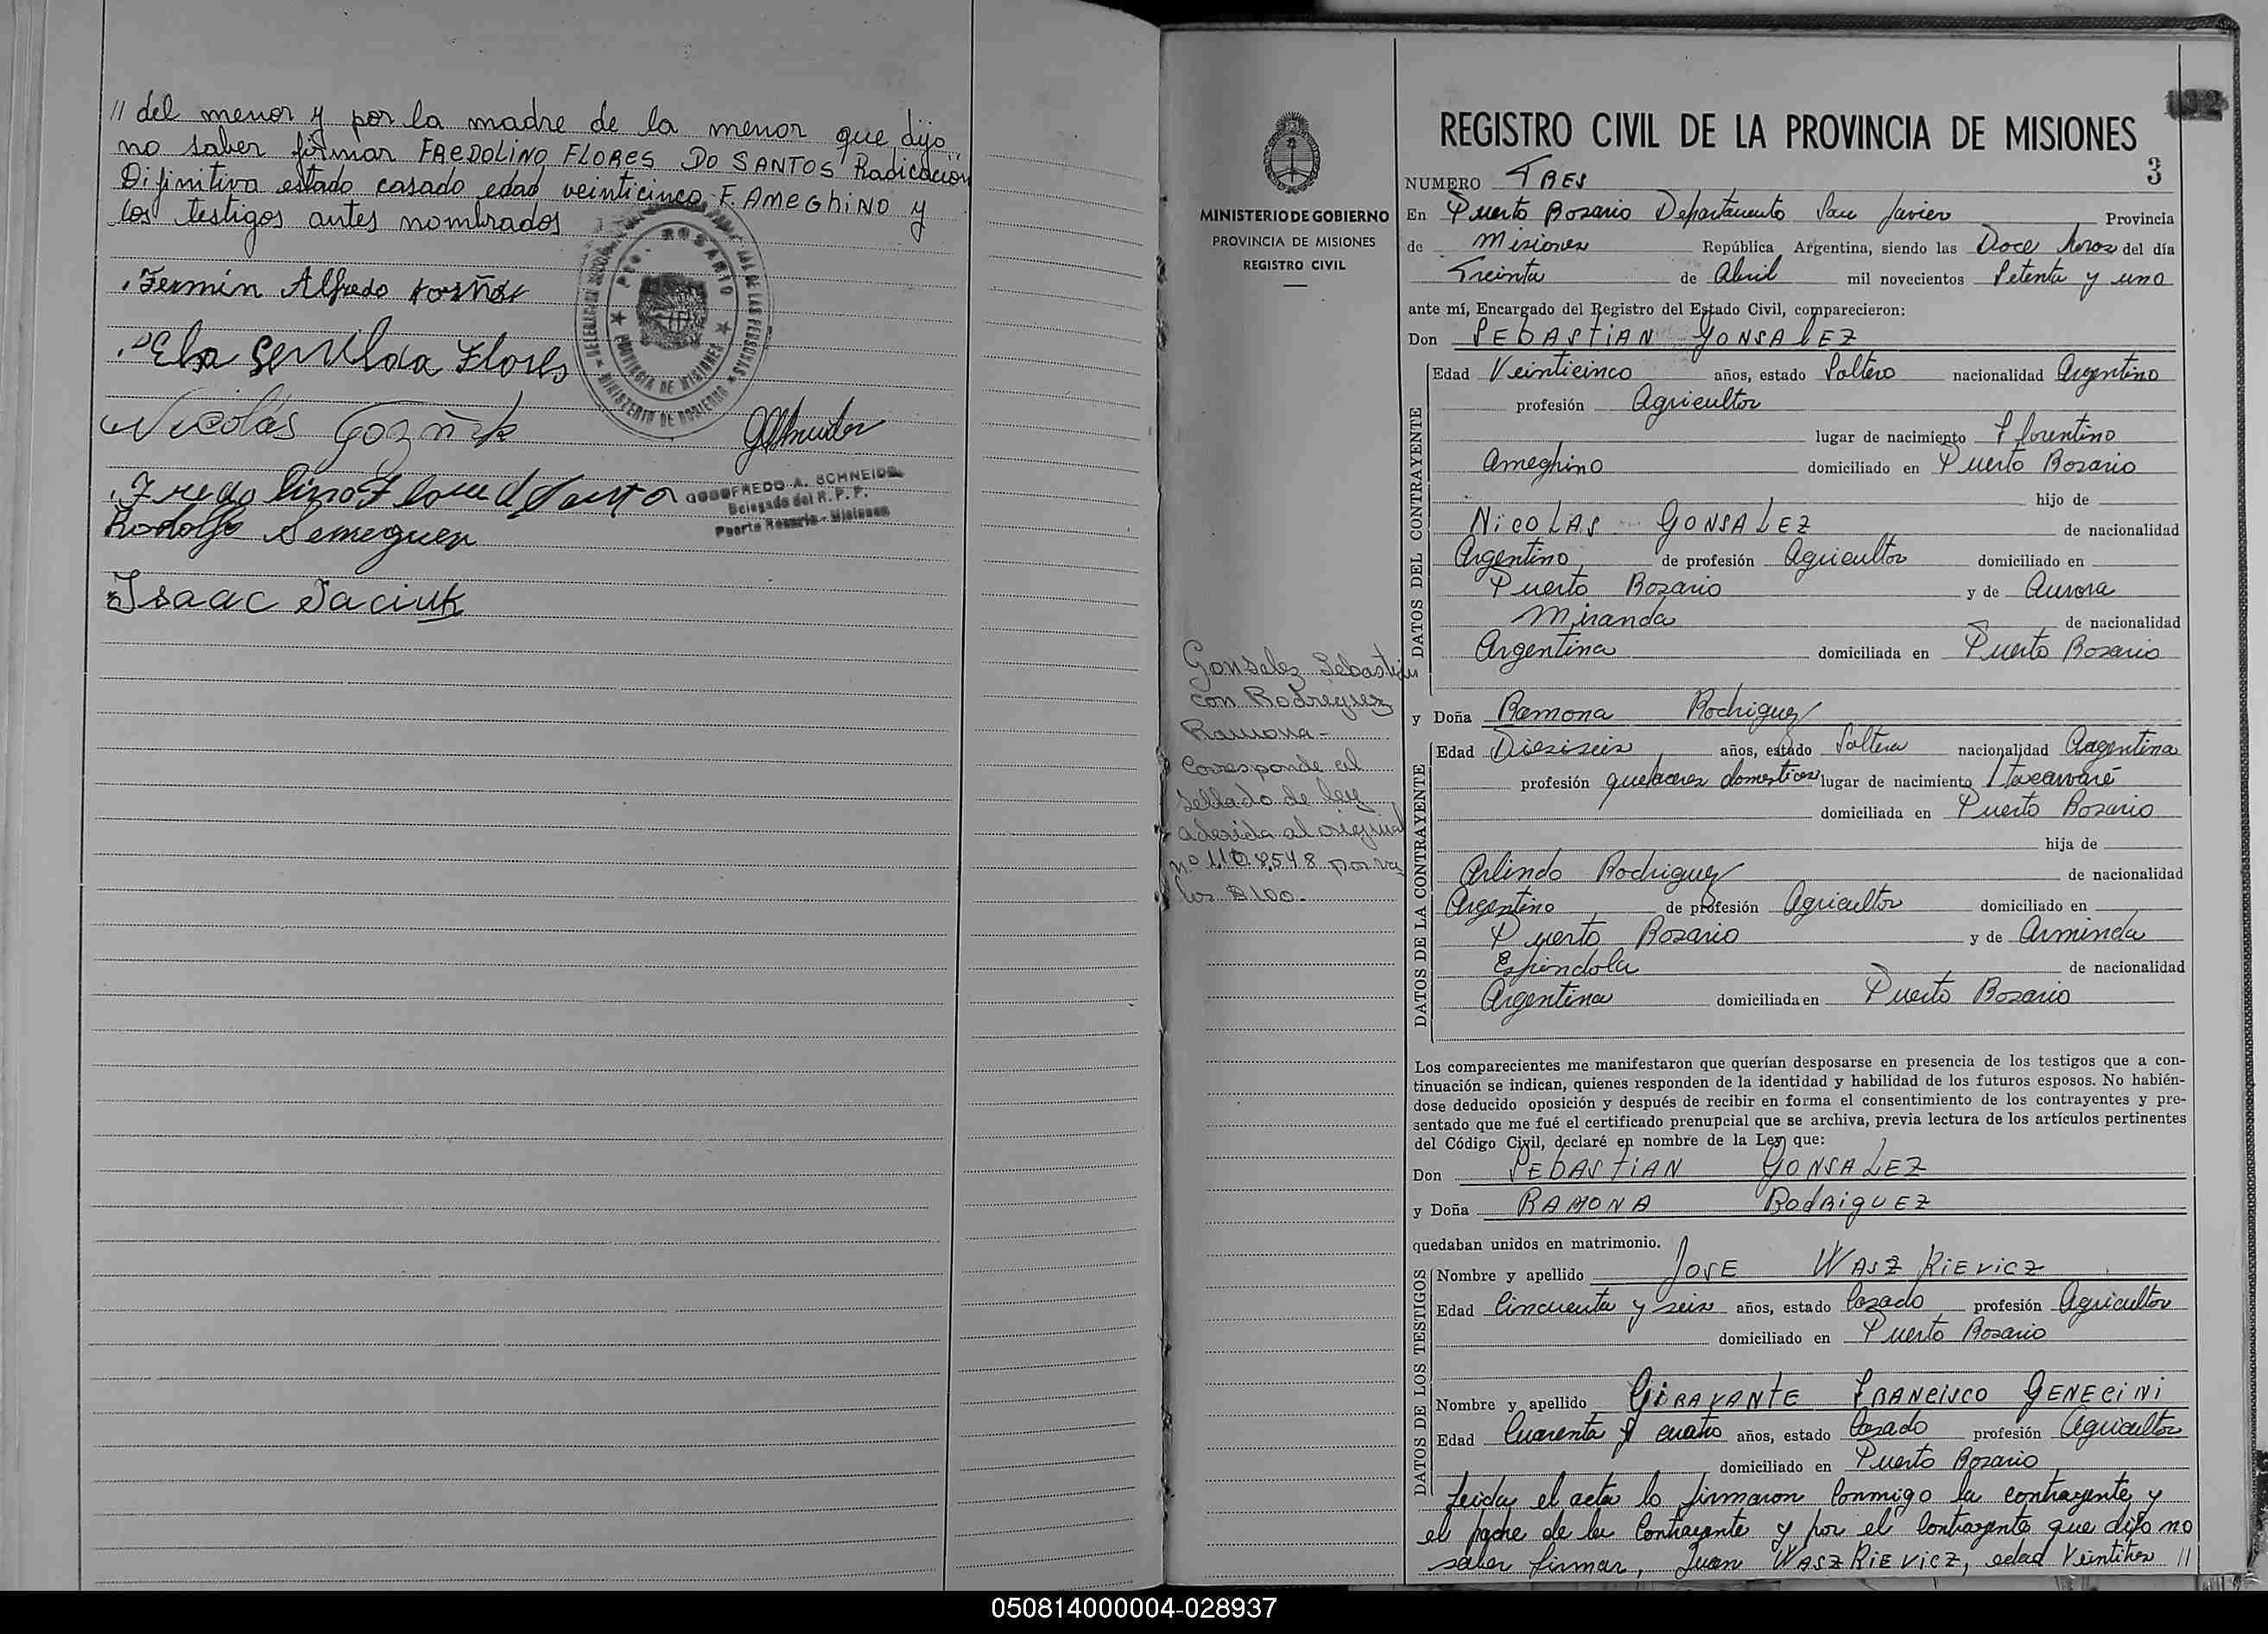 // del menor y por la madre de la menor que dijo
no saber firmar FREDOLINO FLORES DO SANTOS Radicación
Difinitiva estado casado edad veinticinco F. AMEGHINO y
los testigos antes nombrados
Fermin Alfredo
Flores
Nicolás
Rodolfo
Isaac Saciuk
PTO. ROSARIO
PROVINCIA DE MISIONES
MINISTERIO DE GOBIERNO
GODOFREDO A. SCHNEIDER
Delegado del R. P. P.
Puerto Rosario - Misiones
MINISTERIO DE GOBIERNO
PROVINCIA DE MISIONES
REGISTRO CIVIL
Gonsalez Sebastián
con Rodreguez
Ramona -
Corresponde al
Sellado de ley
aderida al original
por va
lor $ 100.-
REGISTRO CIVIL DE LA PROVINCIA DE MISIONES
3
NUMERO TRES
En Puerto Rosario Departamento San Javier Provincia
de Misiones República Argentina, siendo las Doce horas del día
Treinta de Abril mil novecientos Setenta y uno
ante mí, Encargado del Registro del Estado Civil, comparecieron:
Don SEBASTIAN GONSALEZ
DATOS DEL CONTRAYENTE
Edad Veinticinco años, estado Soltero nacionalidad Argentino
profesión Agricultor
lugar de nacimiento Florentino
Ameghino domiciliado en Puerto Rosario
hijo de
NICOLAS GONSALEZ de nacionalidad
Argentino de profesión Agricultor domiciliado en
Puerto Rosario y de Aurora
Miranda de nacionalidad
Argentina domiciliada en Puerto Rosario
y Doña Ramona Rodriguez
DATOS DE LA CONTRAYENTE
Edad Diesiseis años, estado Soltera nacionalidad Argentina
profesión quehaceres domesticos lugar de nacimiento Itacaruaré
domiciliada en Puerto Rosario
hija de
Arlindo Rodriguez de nacionalidad
Argentino de profesión Agricultor domiciliado en
Puerto Rosario y de Arminda
Espindola de nacionalidad
Argentina domiciliada en Puerto Rosario
Los comparecientes me manifestaron que querían desposarse en presencia de los testigos que a con-
tinuación se indican, quienes responden de la identidad y habilidad de los futuros esposos. No habién-
dose deducido oposición y después de recibir en forma el consentimiento de los contrayentes y pre-
sentado que me fué el certificado prenupcial que se archiva, previa lectura de los artículos pertinentes
del Código Civil, declaré en nombre de la Ley que:
Don SEBASTIAN GONSALEZ
y Doña RAMONA RODRIGUEZ
quedaban unidos en matrimonio.
DATOS DE LOS TESTIGOS
Nombre y apellido JOSE WASZKIEVICZ
Edad Cincuenta y seis años, estado Casado profesión Agricultor
domiciliado en Puerto Rosario
Nombre y apellido FRANCISCO GENECINI
Edad Cuarenta y cuatro años, estado Casado profesión Agricultor
domiciliado en Puerto Rosario
Leida el acta lo firmaron Conmigo la contrayente y
el padre de la Contrayente y por el Contrayente que dijo no
saber firmar, Juan WASZKIEVICZ, edad Veintitres //
050814000004-028937